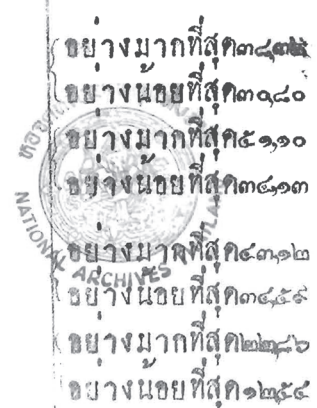 อย่างมากที่สุด
อย่างน้อยที่สุด๓๐,๘๐
อย่างมากที่สุด๕๑,๑๐
อย่างน้อยที่สุด๓๔,๑๓
อย่างมากที่สุด๔๓,๑๒
อย่างน้อยที่สุด๓๔,๕๙
อย่างมากที่สุด๒๒,๘๖
อย่างน้อยที่สุด๑๒,๕๔
NATIONAL ARCHIVES